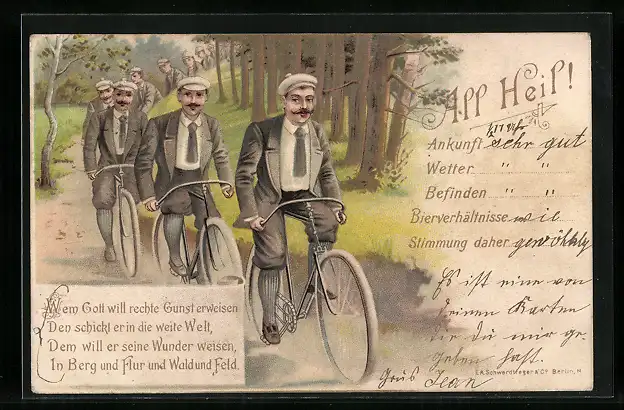 All Heil!
Ankunft ½11 Uhr sehr gut
Wetter " "
Befinden " "
Bierverhältnisse wie
Stimmung daher
Es ist eine von
deinen Karten
die du mir ge-
geben hast.
Gruß Jean
E.A. Schwerdtfeger & Co. Berlin, N
Wem Gott will rechte Gunst erweisen
Den schickt er in die weite Welt,
Dem will er seine Wunder weisen,
In Berg und Flur und Wald und Feld.